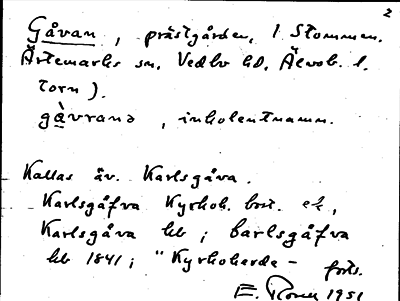 2
Gåvan, prästgården, 1 Stommen.
Ärtemarks sn, Vedbo hd, Älvsb. l.
torn).
gàvrana, inkolentnamn.
Kallas äv. Karlsgåva.
Karlsgåfva Kyrkob. bost. ek,
Karlsgåva hb; Carlsgåfva
hb 1841; "Kyrkoherde- forts.
E. 1951